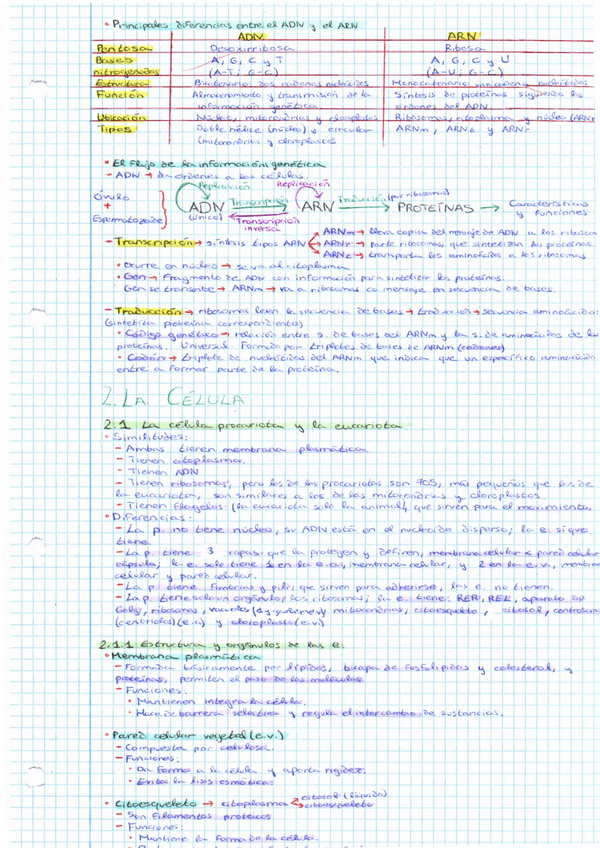 • Principales diferencias entre el ADN y el ARN
ADN ARN
Pentosa Desoxirribosa Ribosa
Bases A, G, C y T A, G, C y U
nitrogenadas (A-T; G-C) (A-U; G-C)
Estructura Bicatenario: dos cadenas nucleótidos Monocatenario: una cadena nucleótidos
Función Almacenamiento y transmisión de la Síntesis de proteínas siguiendo las
información genética órdenes del ADN
Ubicación Núcleo, mitocondrias y cloroplastos Ribosomas, citoplasma y núcleo (ARNm
Tipos Doble hélice (núcleo) y circular ARNm, ARNt y ARNr
(mitocondrias y cloroplastos
• El flujo de la información genética
- ADN → da órdenes a las células.
Replicación Replicación
Óvulo + Espermatozoide ADN (único) Transcripción Transcripción inversa ARN Traducción (por ribosomas) PROTEÍNAS → Características y funciones
- Transcripción → síntesis tipos ARN
ARNm → lleva copia del mensaje de ADN a los ribosom
ARNr → parte ribosomas, que sintetizan las proteínas.
ARNt → transporta los aminoácidos a los ribosomas
• Ocurre en núcleo → se va al citoplasma
• Gen → Fragmento de ADN con información para sintetizar las proteínas.
Gen se transcribe → ARNm → va a ribosomas co mensaje en secuencia de bases.
- Traducción → ribosomas leen la secuencia de bases → traducción → secuencia aminoácidos
(sintetiza proteína correspondiente)
• Código genético → relación entre s. de bases del ARNm y la s. de aminoácidos de las
proteínas. Universal. Formado por tripletes de bases de ARNm (codones)
• Codón → triplete de nucleótidos del ARNm que indica que un específico aminoácido
entre a formar parte de la proteína.
2. LA CÉLULA
2.1 La célula procariota y la eucariota
• Similitudes:
- Ambas tienen membrana plasmática
- Tienen citoplasma.
- Tienen ADN
- Tienen ribosomas, pero los de las procariotas son 70S, más pequeños que los de
la eucariotas, son similares a los de las mitocondrias y cloroplastos
- Tienen flagelos (la eucariota solo la animal), que sirven para el movimiento.
• Diferencias:
- La p. no tiene núcleo, su ADN está en el nucleoide disperso; la e. sí que
tiene.
- La p. tiene 3 capas que la protegen y definen, membrana celular pared celular
cápsula; la e. solo tiene 1 en la e.a., membrana celular, y 2 en la e.v., membran
celular y pared celular.
- La p. tiene fimbrias y pili, que sirven para adherirse, las e. no tienen.
- La p. tiene solo un orgánulo, los ribosomas; la e. tiene: RER, REL, aparato de
Golgi, ribosomas, vacuolas mitocondrias, citoesqueleto, citosol, centrosoma
(centriolos) (e.a) y cloroplasto (e.v)
2.1.1 Estructura y orgánulos de las e.
• Membrana plasmática
- Formada básicamente por lípidos, bicapa de fosfolípidos y colesterol, y
proteínas, permiten el paso de las moléculas
- Funciones:
• Mantienen íntegra la célula.
• Hace de barrera selectiva y regula el intercambio de sustancias.
• Pared celular vegetal (e.v.)
- Compuesta por celulosa.
- Funciones:
• Da forma a la célula y aporta rigidez.
• Evita la lisis osmótica.
• Citoesqueleto → citoplasma citosol (líquido) citoesqueleto
- Son filamentos proteicos
- Funciones:
• Mantiene la forma de la célula.